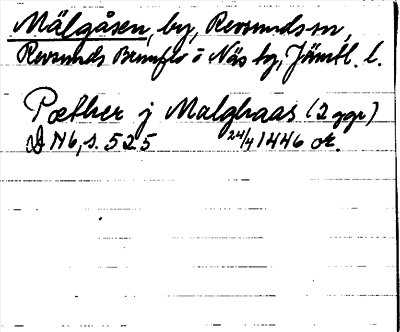 Mälgåsen, by, Revsunds sn,
Revsunds Brunflo o Näs tg, Jämtl. l.
Pæther j Malghaas (2 ggr)
D N 6, s. 525 24/4 1446 or.